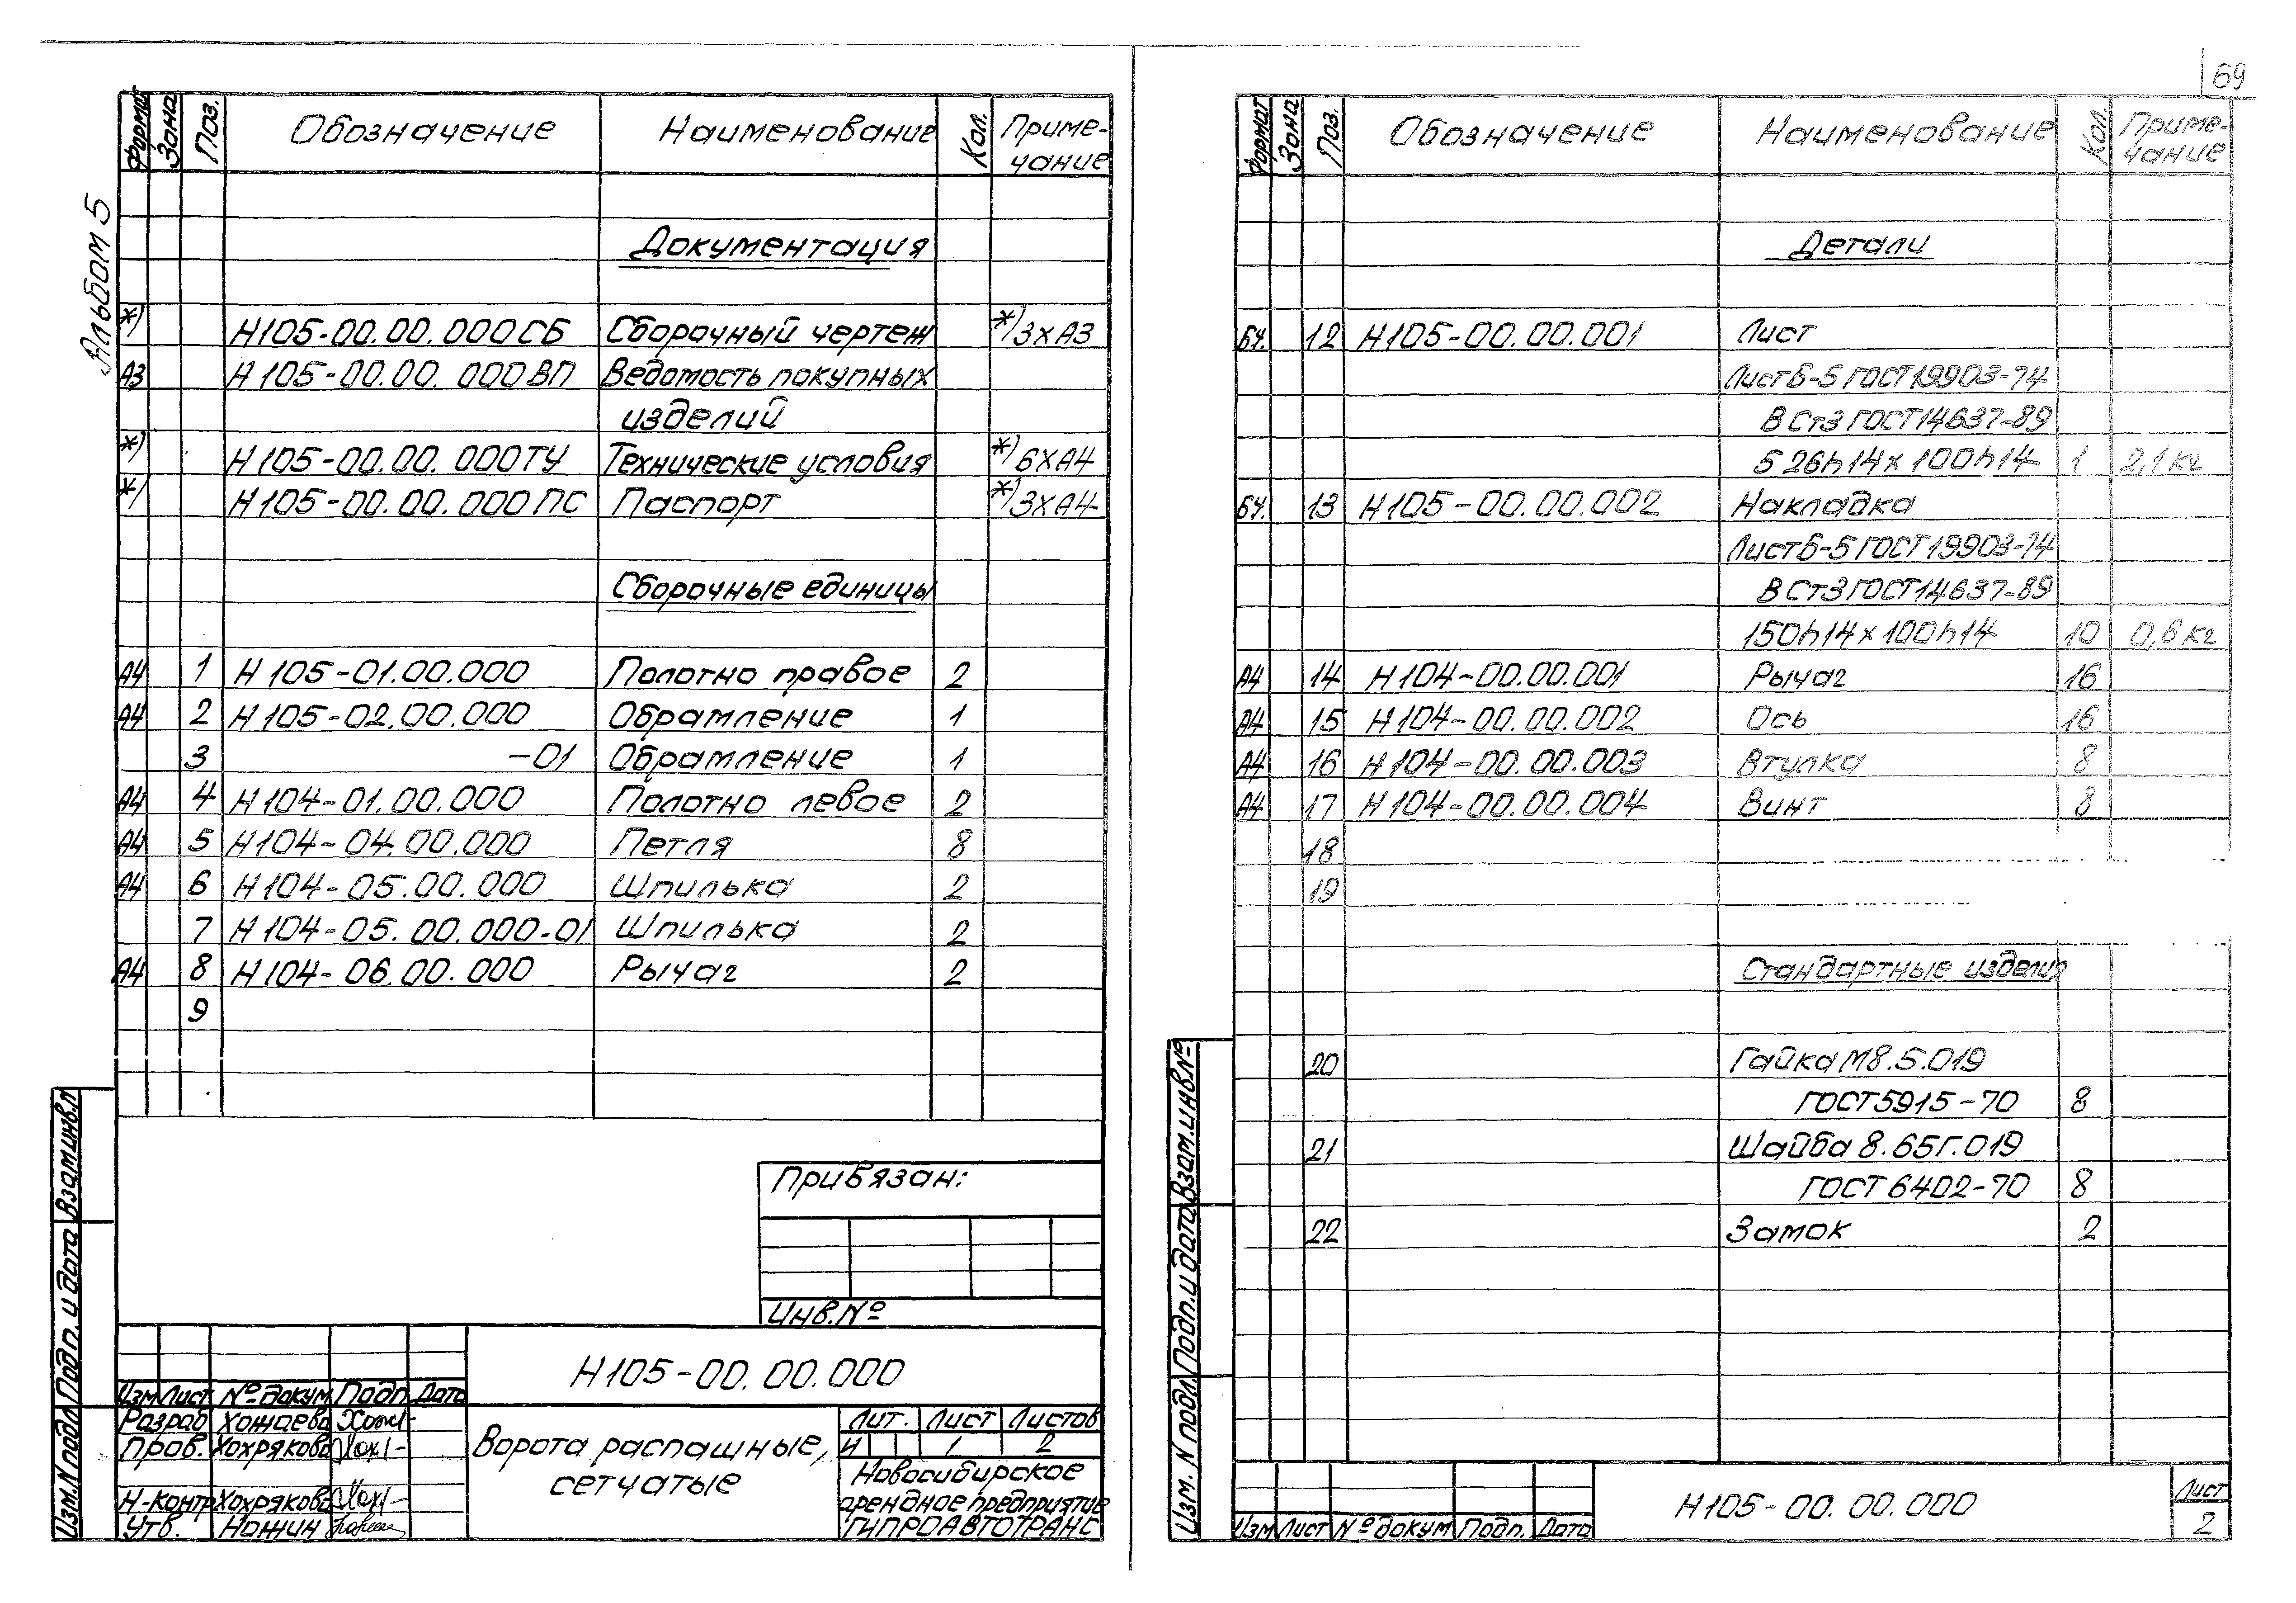 Альбом 5
Формат Зона Поз. Обозначение Наименование Кол. Приме-
чание
Документация
*) Н105-00.00.000СБ Сборочный чертеж *) 3хА3
А3 Н105-00.00.000ВП Ведомость покупных
изделий
*) Н105-00.00.000ТУ Технические условия *) 6хА4
*) Н105-00.00.000ПС Паспорт *) 3хА4
Сборочные единицы
А4 1 Н105-01.00.000 Полотно правое 2
А4 2 Н105-02.00.000 Обрамление 1
3 -01 Обрамление 1
А4 4 Н104-01.00.000 Полотно левое 2
А4 5 Н104-04.00.000 Петля 8
А4 6 Н104-05.00.000 Шпилька 2
7 Н104-05.00.000-01 Шпилька 2
А4 8 Н104-06.00.000 Рычаг 2
9
Привязан:
Инв.№
Н105-00.00.000
Изм Лист № докум Подп. Дата
Разраб Хожаева
Пров. Хохрякова
Н-контр Хохрякова
Утв. Ножин
Ворота распашные,
сетчатые
Лит. Лист Листов
И 1 2
Новосибирское
арендное предприятие
ГИПРОАВТОТРАНС
Изм. N подл Подп. и дата Взам.инв.N
69
Формат Зона Поз. Обозначение Наименование Кол. Приме-
чание
Детали
БЧ. 12 Н105-00.00.001 Лист
Лист Б-5 ГОСТ 19903-74
ВСт3 ГОСТ 14637-89
526h14х100h14 1 2,1кг
БЧ. 13 Н105-00.00.002 Накладка
Лист Б-5 ГОСТ 19903-74
ВСт3 ГОСТ 14637-89
150h14х100h14 10 0,6кг
А4 14 Н104-00.00.001 Рычаг 16
А4 15 Н104-00.00.002 Ось 16
А4 16 Н104-00.00.003 Втулка 8
А4 17 Н104-00.00.004 Винт 8
18
19
Стандартные изделия
20 Гайка М8.5.019
ГОСТ 5915-70 8
21 Шайба 8.65Г.019
ГОСТ 6402-70 8
22 Замок 2
Изм. N подл. Подп. и дата Взам.инв.№
Изм Лист № докум Подп. Дата
Н105-00.00.000
Лист
2